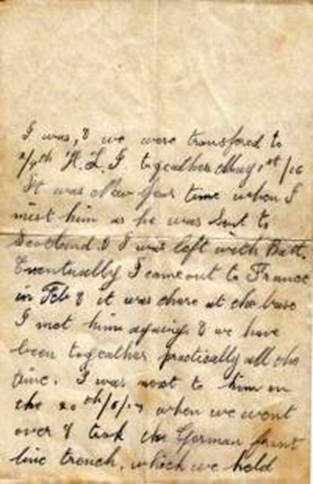 I was, & we were transfered to
2/9th H.L.I. togeather May 1st/16
It was New Year time when I
mist him as he was sent to
Scotland & I was left with Batt.
Eventually I came out to France
in Feb & it was there at the base
I met him againg & we have
been togeather practically all the
time. I was next to him on
the 20th/5/17 when we went
over & took the German front
line trench, which we held